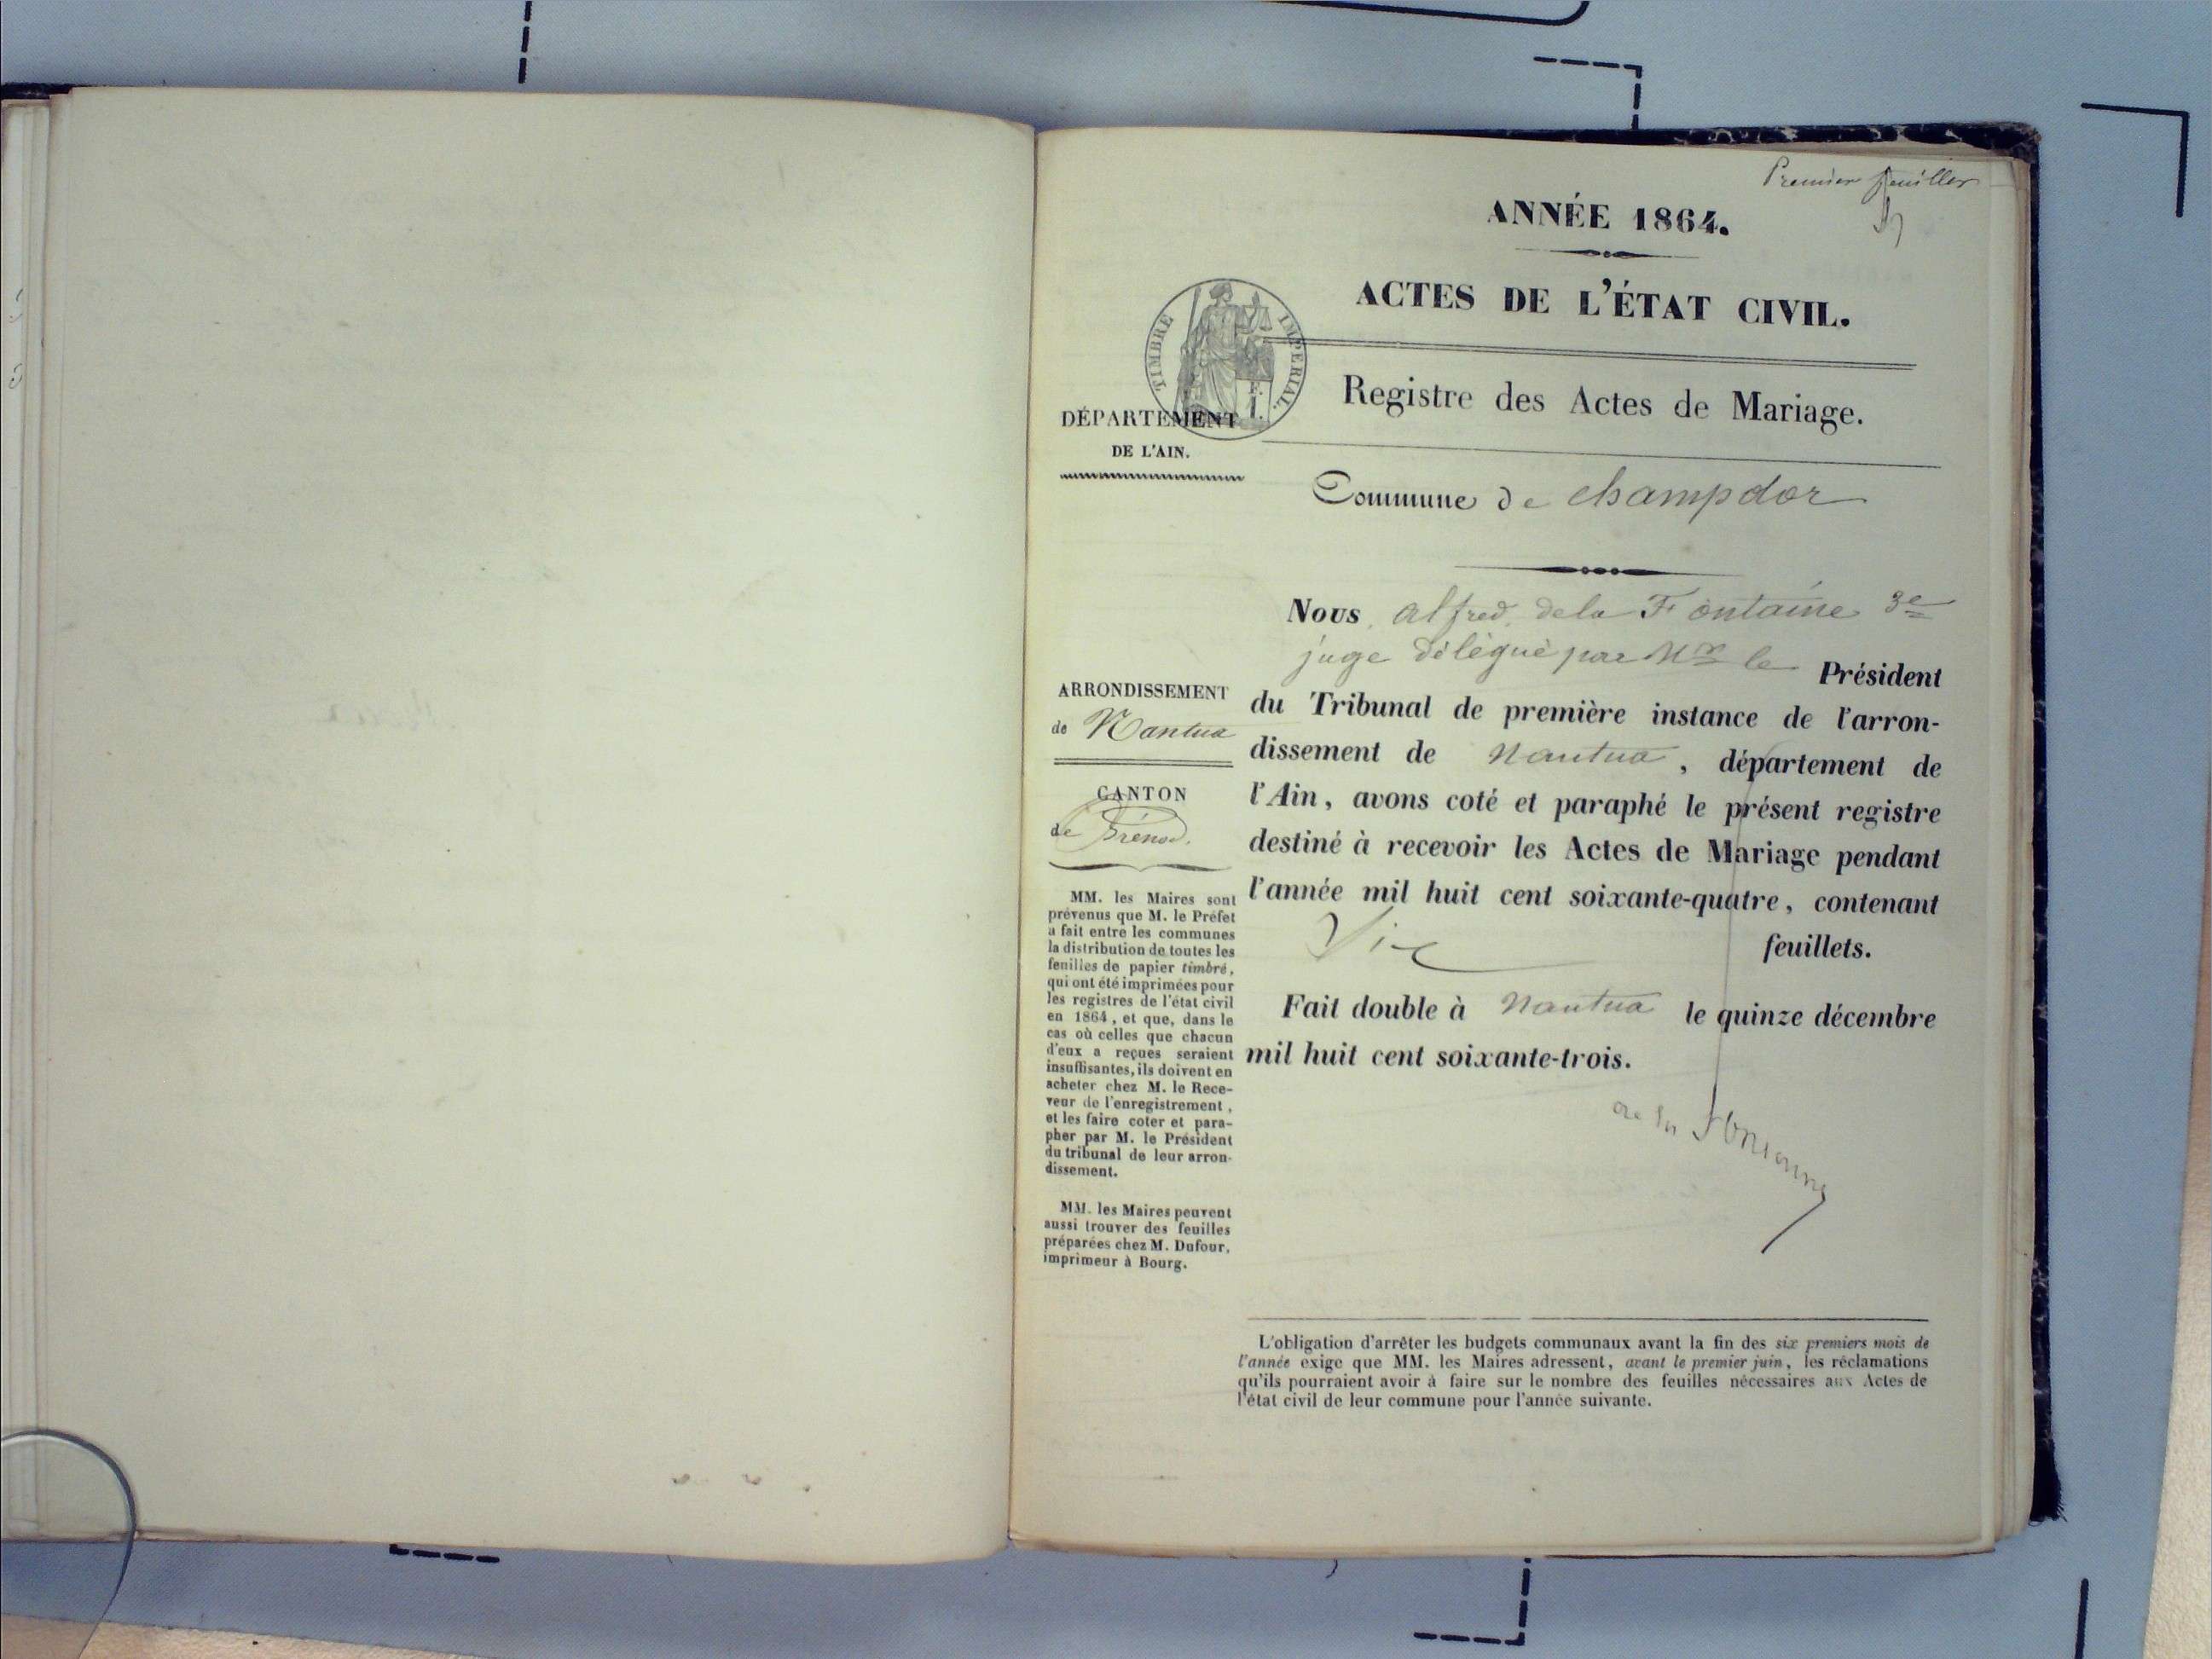 Premier feuillet
ANNÉE 1864.
ACTES DE L'ÉTAT CIVIL.
TIMBRE IMPÉRIAL.
Registre des Actes de Mariage.
DÉPARTEMENT
DE L'AIN.
Commune de champdor
Nous alfred dela Fontaine 3e
juge délégué par Mr le Président
du Tribunal de première instance de l'arron-
dissement de nantua, département de
l'Ain, avons coté et paraphé le présent registre
destiné à recevoir les Actes de Mariage pendant
l'année mil huit cent soixante-quatre, contenant
feuillets.
Fait double à nantua le quinze décembre
mil huit cent soixante-trois.
de la Fontaine
ARRONDISSEMENT
de Nantua
CANTON
de Brénod.
MM. les Maires sont
prévenus que M. le Préfet
a fait entre les communes
la distribution de toutes les
feuilles de papier timbré,
qui ont été imprimées pour
les registres de l'état civil
en 1864, et que, dans le
cas où celles que chacun
d'eux a reçues seraient
insuffisantes, ils doivent en
acheter chez M. le Rece-
veur de l'enregistrement,
et les faire coter et para-
pher par M. le Président
du tribunal de leur arron-
dissement.
MM. les Maires peuvent
aussi trouver des feuilles
préparées chez M. Dufour,
imprimeur à Bourg.
L'obligation d'arrêter les budgets communaux avant la fin des six premiers mois de
l'année exige que MM. les Maires adressent, avant le premier juin, les réclamations
qu'ils pourraient avoir à faire sur le nombre des feuilles nécessaires aux Actes de
l'état civil de leur commune pour l'année suivante.